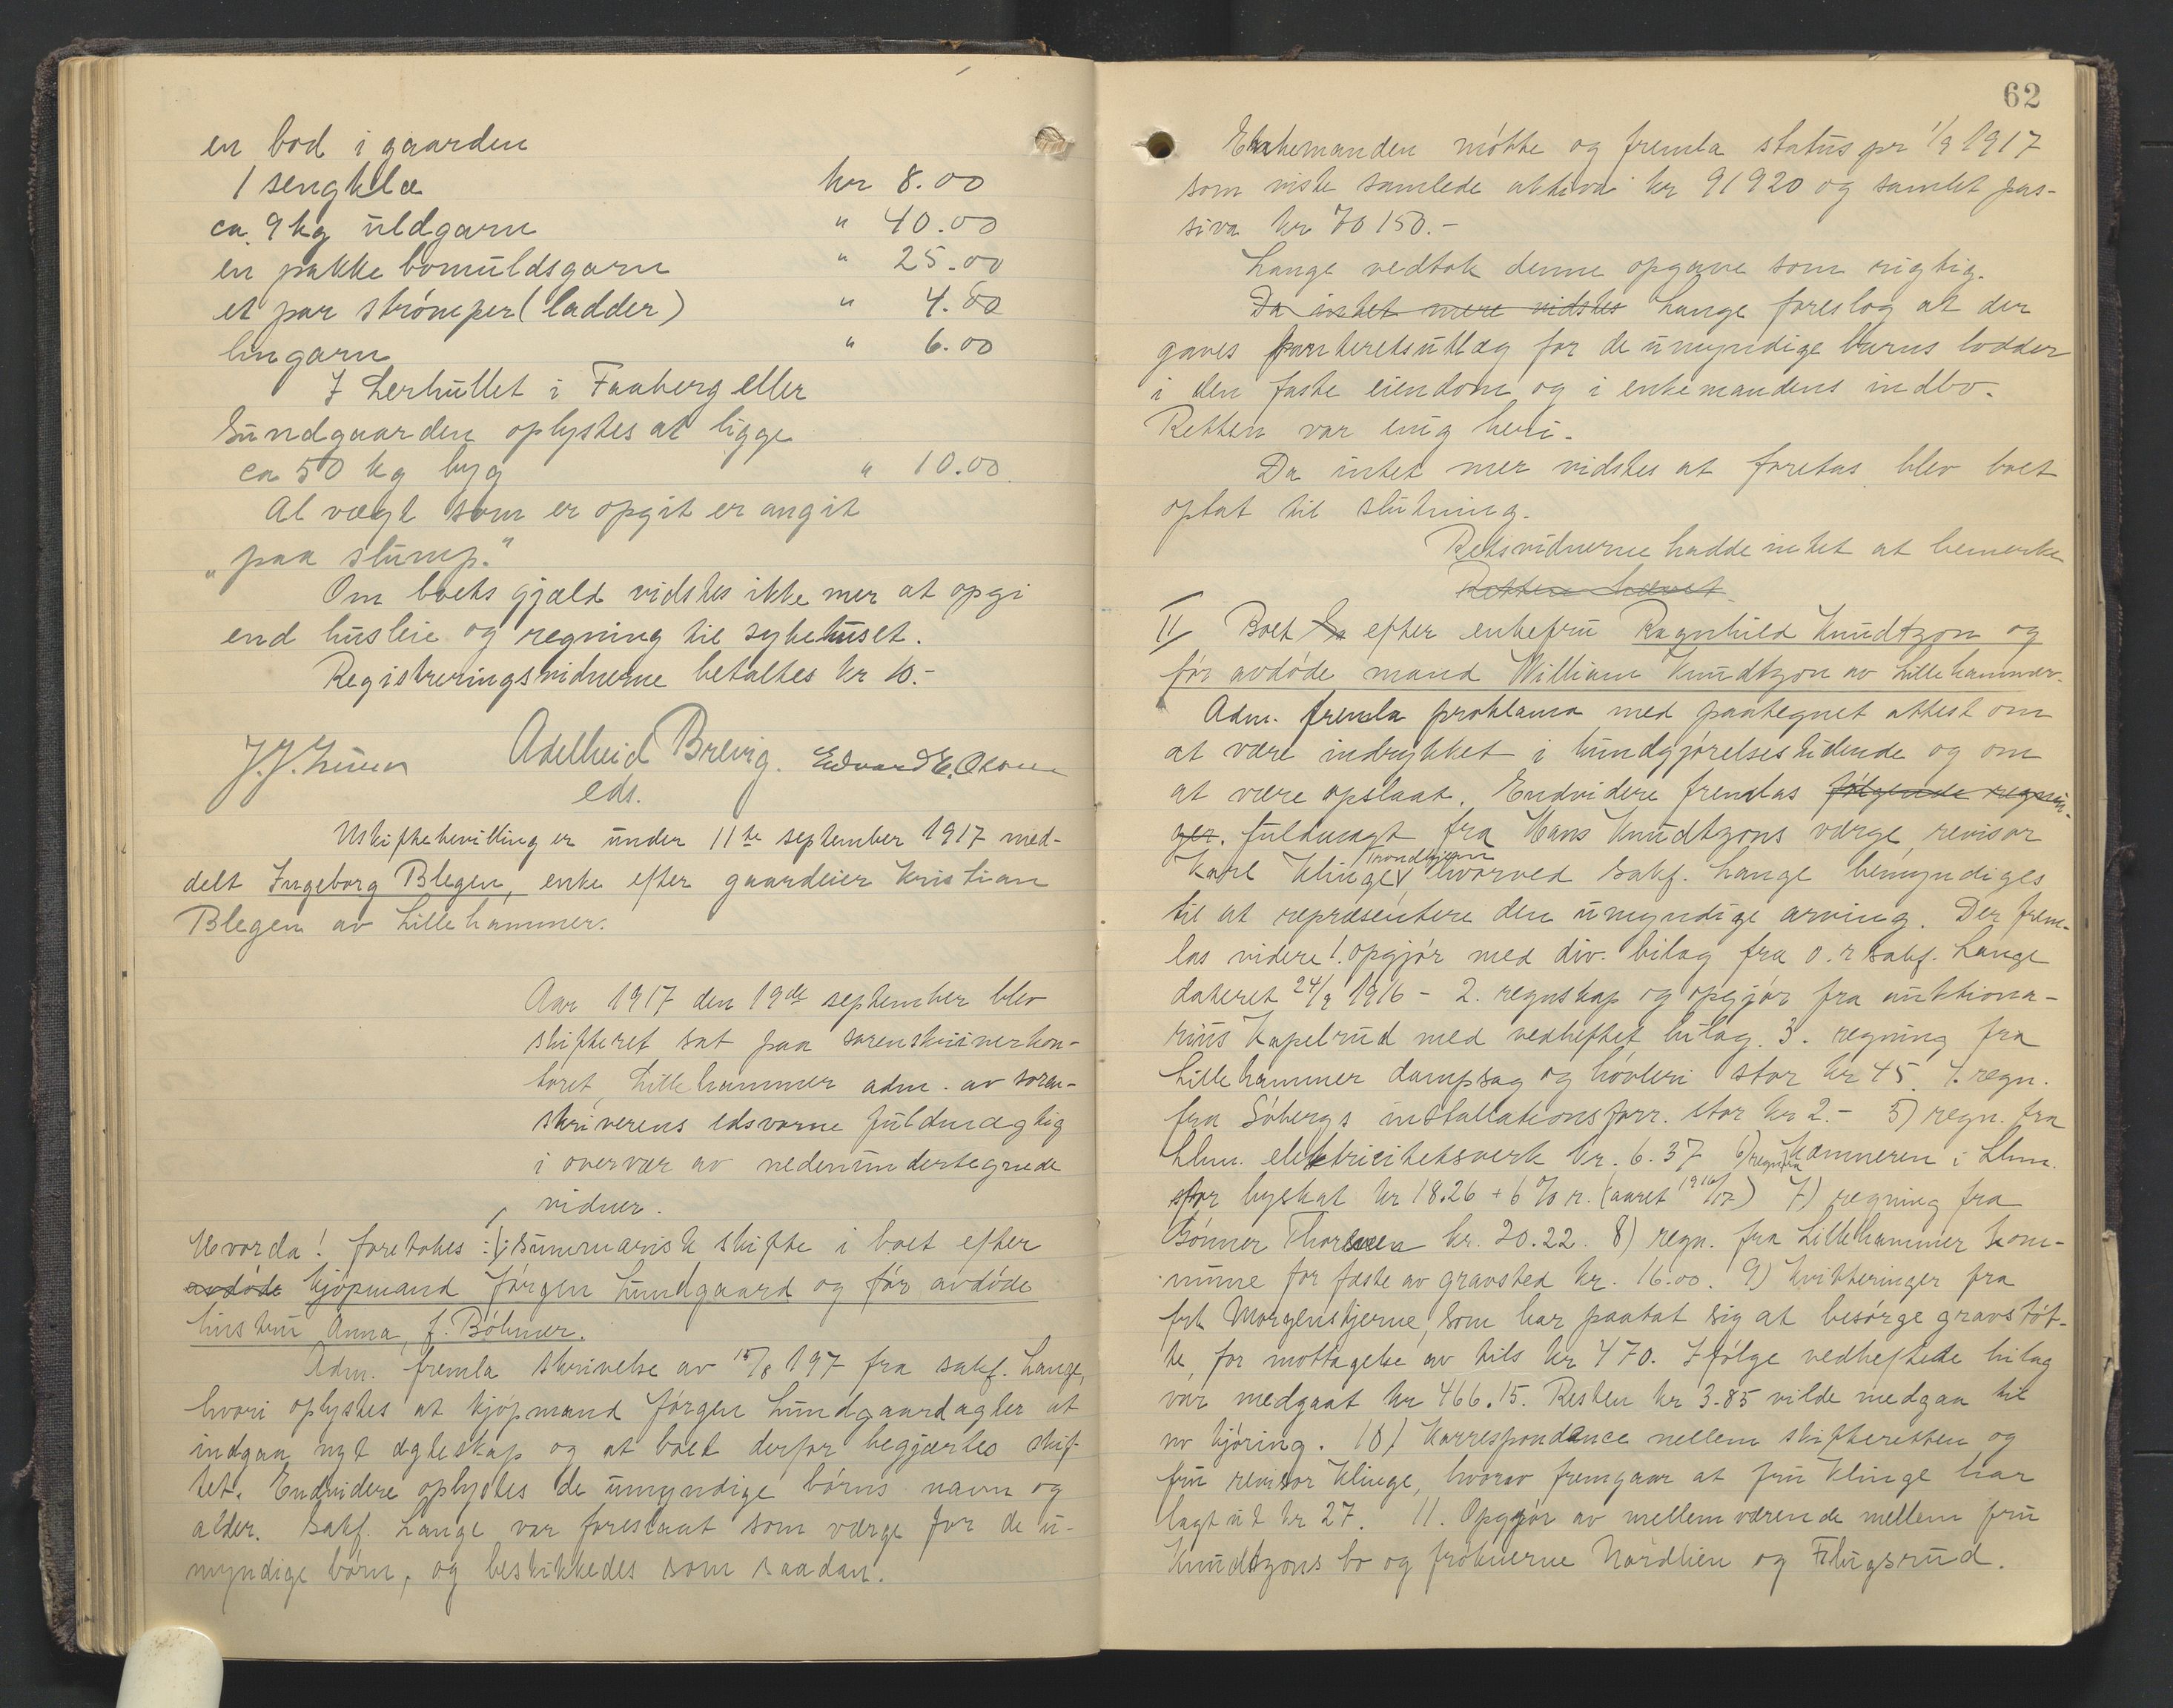 en bod i gaarden
1 sengklæ kr 8.00
ca. 9 kg uldgarn " 40.00
en pakke bomuldsgarn " 25.00
et par strömper (ladder) " 4.00
lingarn " 6.00
I Lerhullet i Faaberg eller
Lundgaarden oplystes at ligge
ca 50 kg byg " 10.00
Al vægt som er opgit er angit
"paa slump."
Om boets gjæld vidstes ikke mer at opgi
end husleie og regning til sykehuset.
Registreringsvidnerne betaltes kr 10.-
Adelheid Brevig. Edvard E. Olsen
eds.
Uskiftebevilling er under 11te september 1917 med-
delt Ingeborg Blegen, enke efter gaardeier Kristian
Blegen av Lillehammer.
Aar 1917 den 19de september blev
skifteret sat paa sorenskriverkon-
toret, Lillehammer adm. av soren-
skriverens edsvorne fuldmægtig
i overvær av nedenundertegnede
vidner.
Hvorda! foretokes : I; summarisk skifte i boet efter
avdöde kjöpmand Jörgen Lundgaard og för avdöde
hustru Anna, f. Böhmer.
Adm. fremla skrivelse av 15/8 197 fra sakf. Lange,
hvori oplystes at kjöpmand Jörgen Lundgaard agter at
indgaa nyt ægteskap og at boet derfor begjærtes skif-
tet. Endvidere oplystes de umyndige börns navn og
alder. Sakf. Lange var foreslaat som værge for de u-
myndige börn, og beskikkedes som saadan.
62
Enkemanden mötte og fremla status pr 1/9 1917
som viste samlede aktiva kr 91920 og samlet pas-
siva kr 70 150.-
Lange vedtok denne opgave som rigtig.
Da intet mere vidstes Lange foreslog at der
gaves panteretsutlæg for de umyndige barns lodder
i den faste eiendom og i enkemandens indbo.
Retten var enig heri.
Da intet mer vidstes at foretas blev boet
optat til slutning.
Retsvidnerne hadde intet at bemerke
Retten hævet.
II Boet efter enkefru Ragnhild Knudtzon og
för avdöde mand William Knudtzon av Lillehammer.
Adm. fremla proklama med paategnet attest om
at være indrykket i kundgjörelsestidende og om
at være opslaat. Endvidere fremlas fölgende regnin-
ger. fuldmagt fra Hans Knudtzons værge, revisor
Karl Klinge, Trondhjem hvorved sakf. Lange bemyndiges
til at repræsentere den umyndige arving. Der frem-
las videre 1. opgjör med div. bilag fra o.r.sakf. Lange
dateret 24/9 1916 - 2. regnskap og opgjör fra auktiona-
rius Kapelrud med vedheftet bilag. 3. regning fra
Lillehammer dampsag og hövleri stor kr 45. 4. regn.
fra Söbergs installationsforr. stor kr 2.- 5) regn. fra
Lhm. elektricitetsverk kr. 6.37 6) regn fra kæmneren i Lhm.
stor byskat kr 18.26 + 6 % r. (aaret 1916/17) 7) regning fra
Bönner Thoresen kr. 20.22. 8) regn. fra Lillehammer kom-
mune for fæste av gravsted kr. 16.00. 9) kvitteringer fra
frk Morgenstjerne, som har paatat sig at besörge gravstöt-
te, for mottagelse av tils kr 470. Ifölge vedheftede bilag
var medgaat kr 466.15. Resten kr 3.85 vilde medgaa til
av kjöring. 10) Korrespondance mellem skifteretten og
fru revisor Klinge, hvorav fremgaar at fru Klinge har
lagt ut kr 27. 11. Opgjör av mellemværende mellem fru
Knudtzons bo og fröknerne Nordlien og Flugsrud.